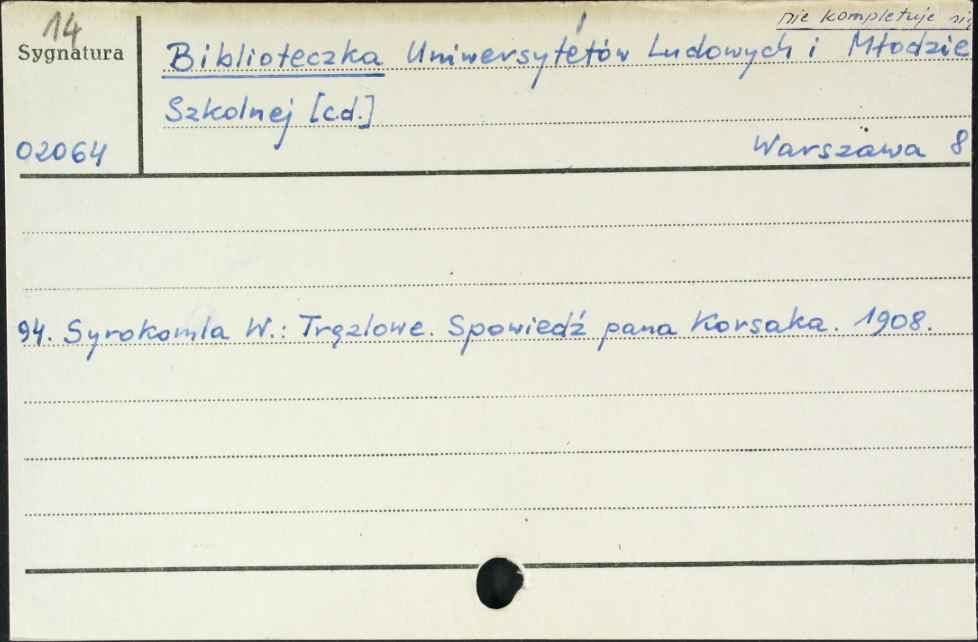 14
nie kompletuje się
Sygnatura
Biblioteczka Uniwersytetów Ludowych i Młodzie
Szkolnej [c.d.]
02064
Warszawa 8
94. Syrokomla W.: Tręzlowe. Spowiedź pana Korsaka. 1908.